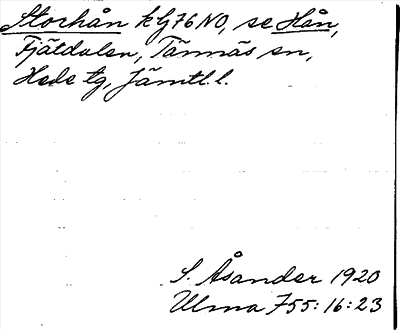 Storhån k G76NO, se Hån,
Fjäldalen, Tännäs sn,
Hede tg, Jämtl. l.
S. Åsander 1920
Ulma 755:16:23